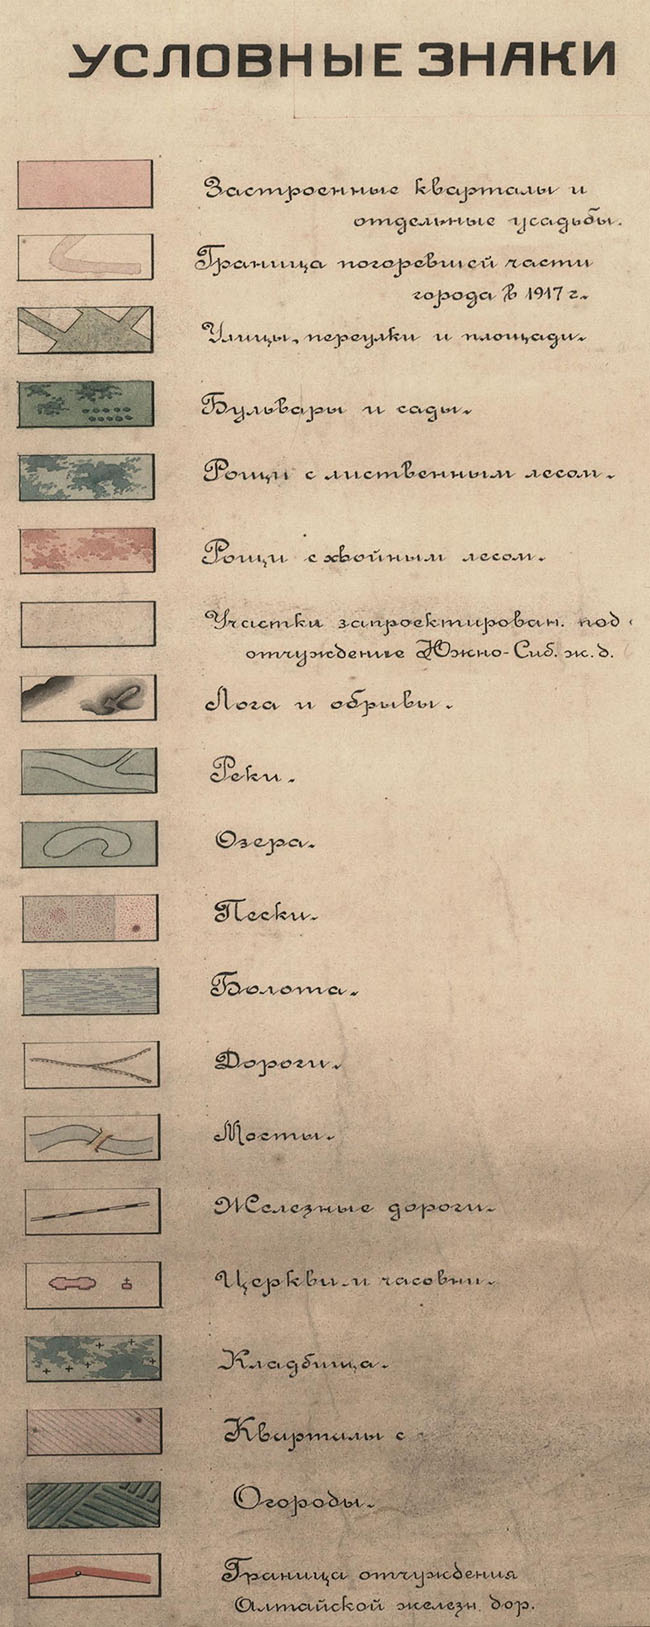 УСЛОВНЫЕ ЗНАКИ
Застроенные кварталы и
отдельные усадьбы.
Граница погоревшей части
города в 1917 г.
Улицы, переулки и площади.
Бульвары и сады.
Рощи с лиственным лесом.
Рощи с хвойным лесом.
Участки запроектирован. под
отчуждение Южно-Сиб. ж. д.
Лога и обрывы.
Реки.
Озера.
Пески.
Болота.
Дороги.
Мосты.
Железные дороги.
Церкви и часовни.
Кладбища.
Кварталы с
Огороды.
Граница отчуждения
Алтайской железн. дор.